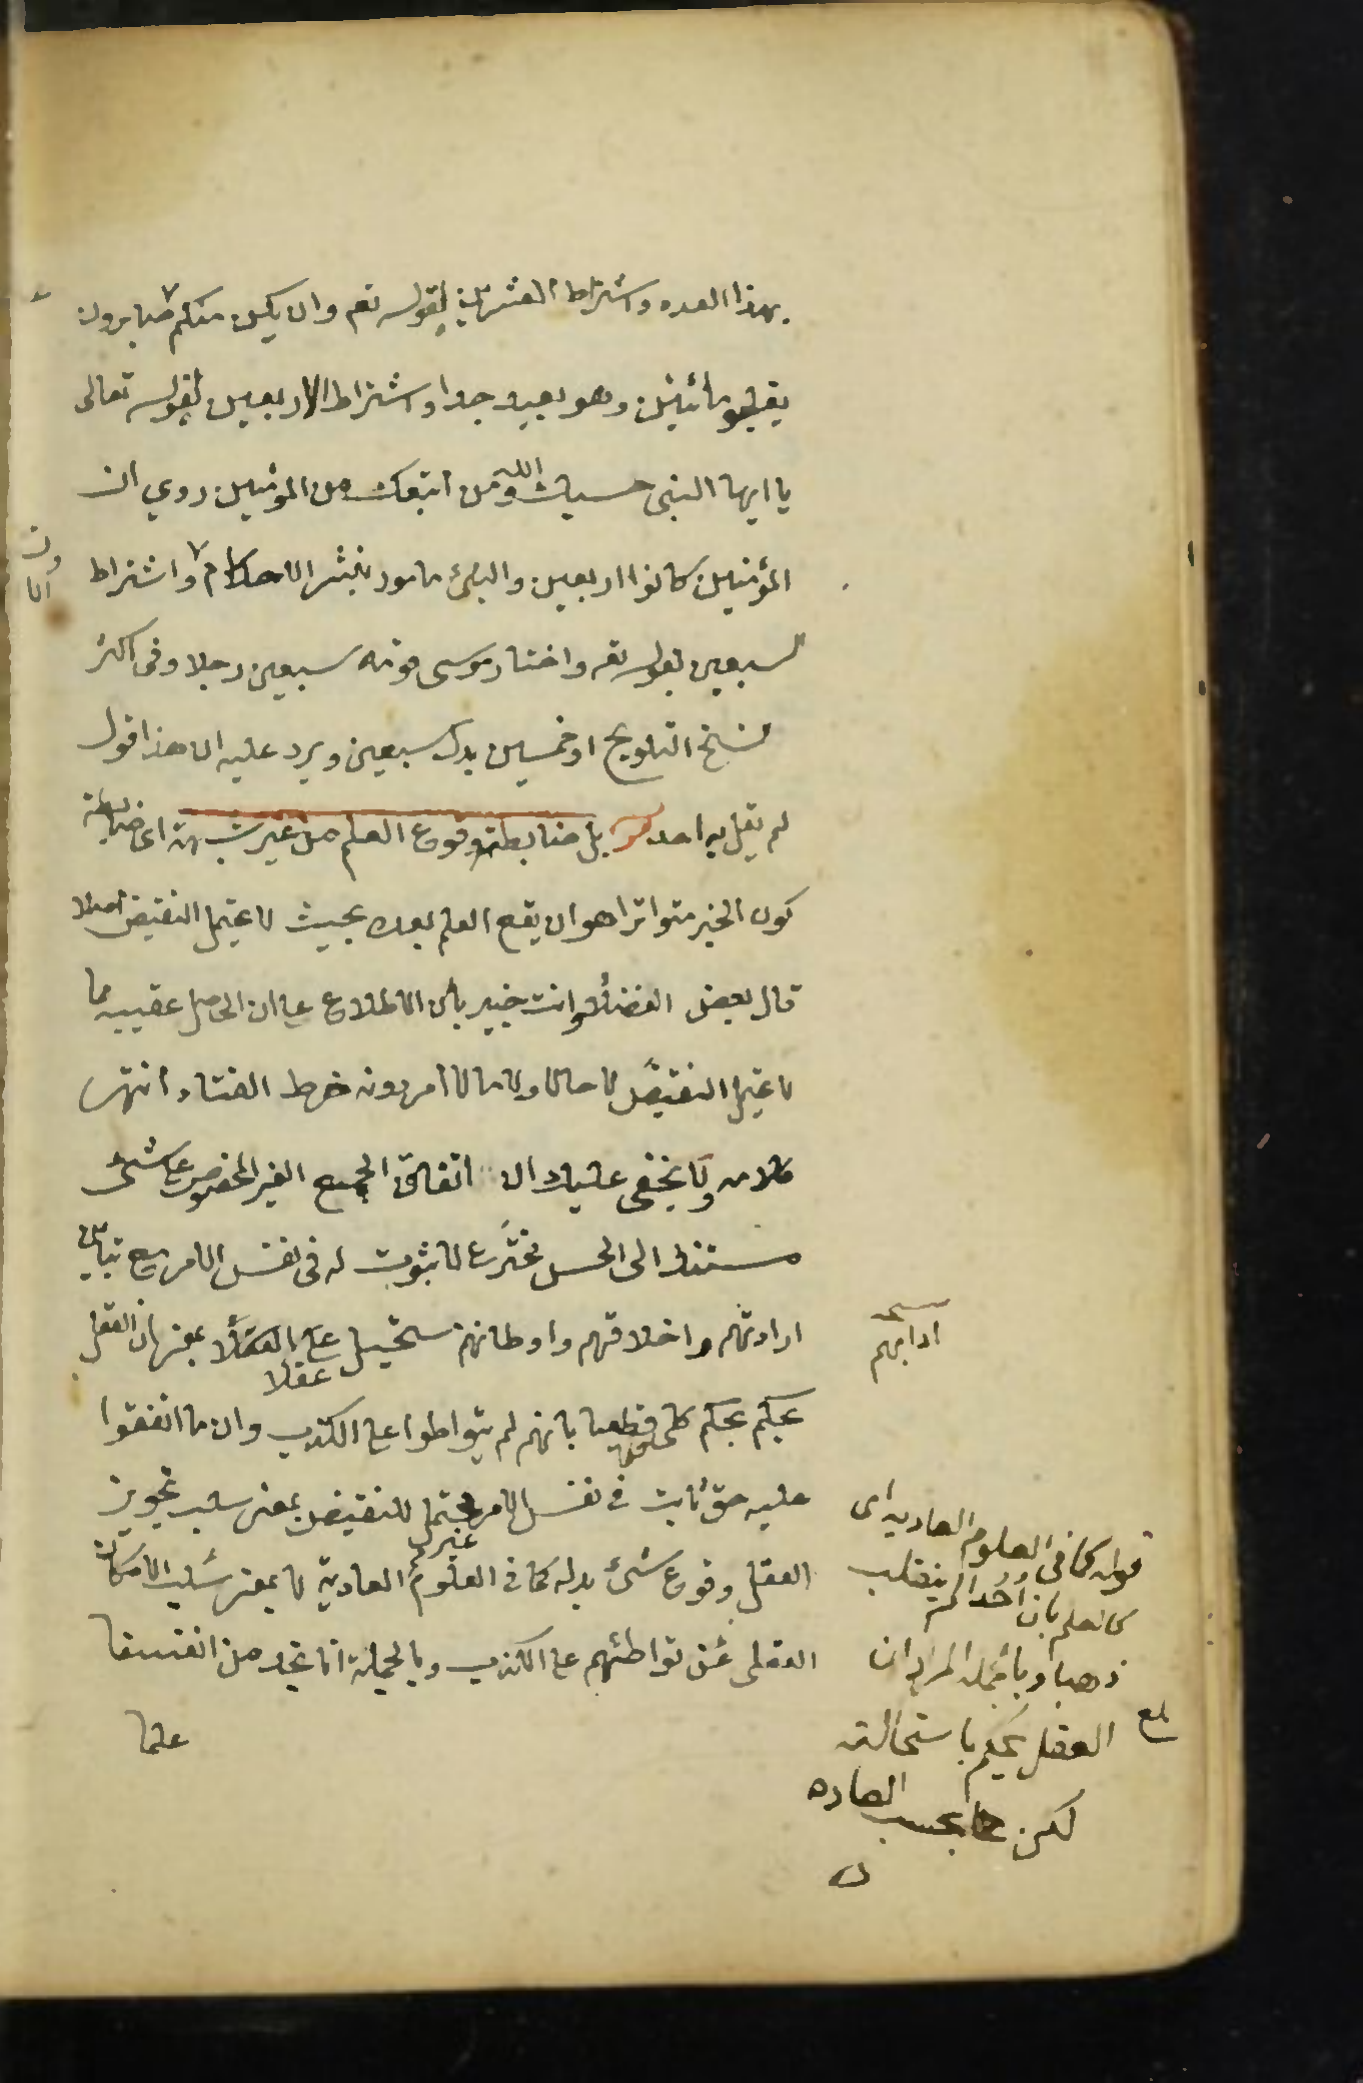 بهذا العدد واشتراط العشرين لقوله تعم وان يكن منكم صابرون
يغلبوا مائتين وهو بعيد جدا واشتراط الاربعين لقوله تعالى
يا ايها النبى حسبك الله ومن اتبعك من المؤمنين روي ان
المؤمنين كانوا اربعين والنبى مامور بنشر الاحكام واشتراط
السبعين لقوله تعم واختار موسى قومه سبعين رجلا وفى اكثر
نسخ التلويح او خمسين بدل سبعين ويرد عليه ان هذا قول
لم يقل به احد بل ضابطته وقوع العلم من غير شبهة اى ضابطة
كون الخبر متواترا هو ان يقع العلم بعده بحيث لا يحتمل النقيض اصلا
قال بعض الفضلاء وانت خبير بان الاطلاع على ان الحاصل عقيبه مما
لا يحتمل النقيض لا حالا ولا مالا امر دونه خرط القتاد انتهى
كلامه ولا يخفى عليك ان اتفاق الجمع الغير المحصور على شئ
مستندا الى الحس مخترع لا ثبوت له فى نفس الامر مع تباين
ارادتهم واخلاقهم واوطانهم مستحيل عقلا بمعنى ان العقل
يحكم بحكم كلى قطعيا بانهم لم يتواطوا على الكذب وان ما اتفقوا
عليه حق ثابت فى نفس الامر غير محتمل للنقيض بمعنى سلب تجويز
العقل وقوع شئ بدله كما فى العلوم العادية لا بمعنى سلب الامكان
العقلى عن تواطئهم على الكذب وبالجملة انا نجد من انفسنا
علما
نسخه
ادابهم
قوله كما فى العلوم العاديه اى
كالعلم بان احدا لم ينقلب
ذهبا وبالجمله المراد ان
العقل يحكم باستحالته
لكن بحسب العاده